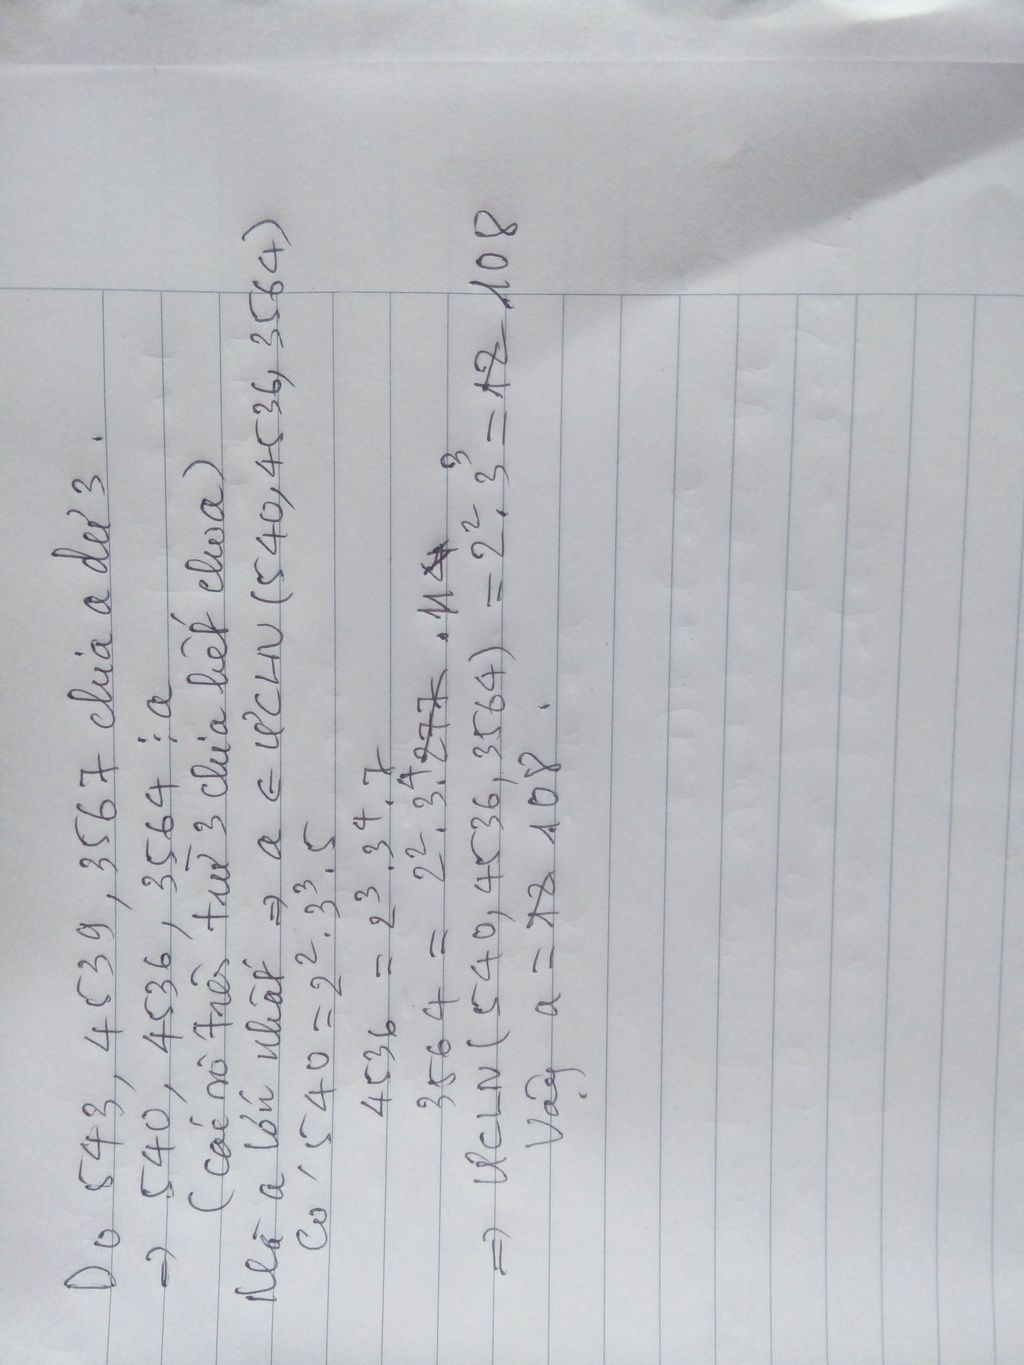 Do 543, 4539, 3567 chia a dư 3.
=> 540, 4536, 3564 ⋮ a
(các số trên trừ 3 chia hết cho a)
Mà a lớn nhất => a ∈ ƯCLN (540, 4536, 3564)
Có 540 = 2².3³.5
4536 = 2³.3⁴.7
3564 = 2².3⁴.11
=> ƯCLN (540, 4536, 3564) = 2².3³ = 12 108
Vậy a = 12 108.